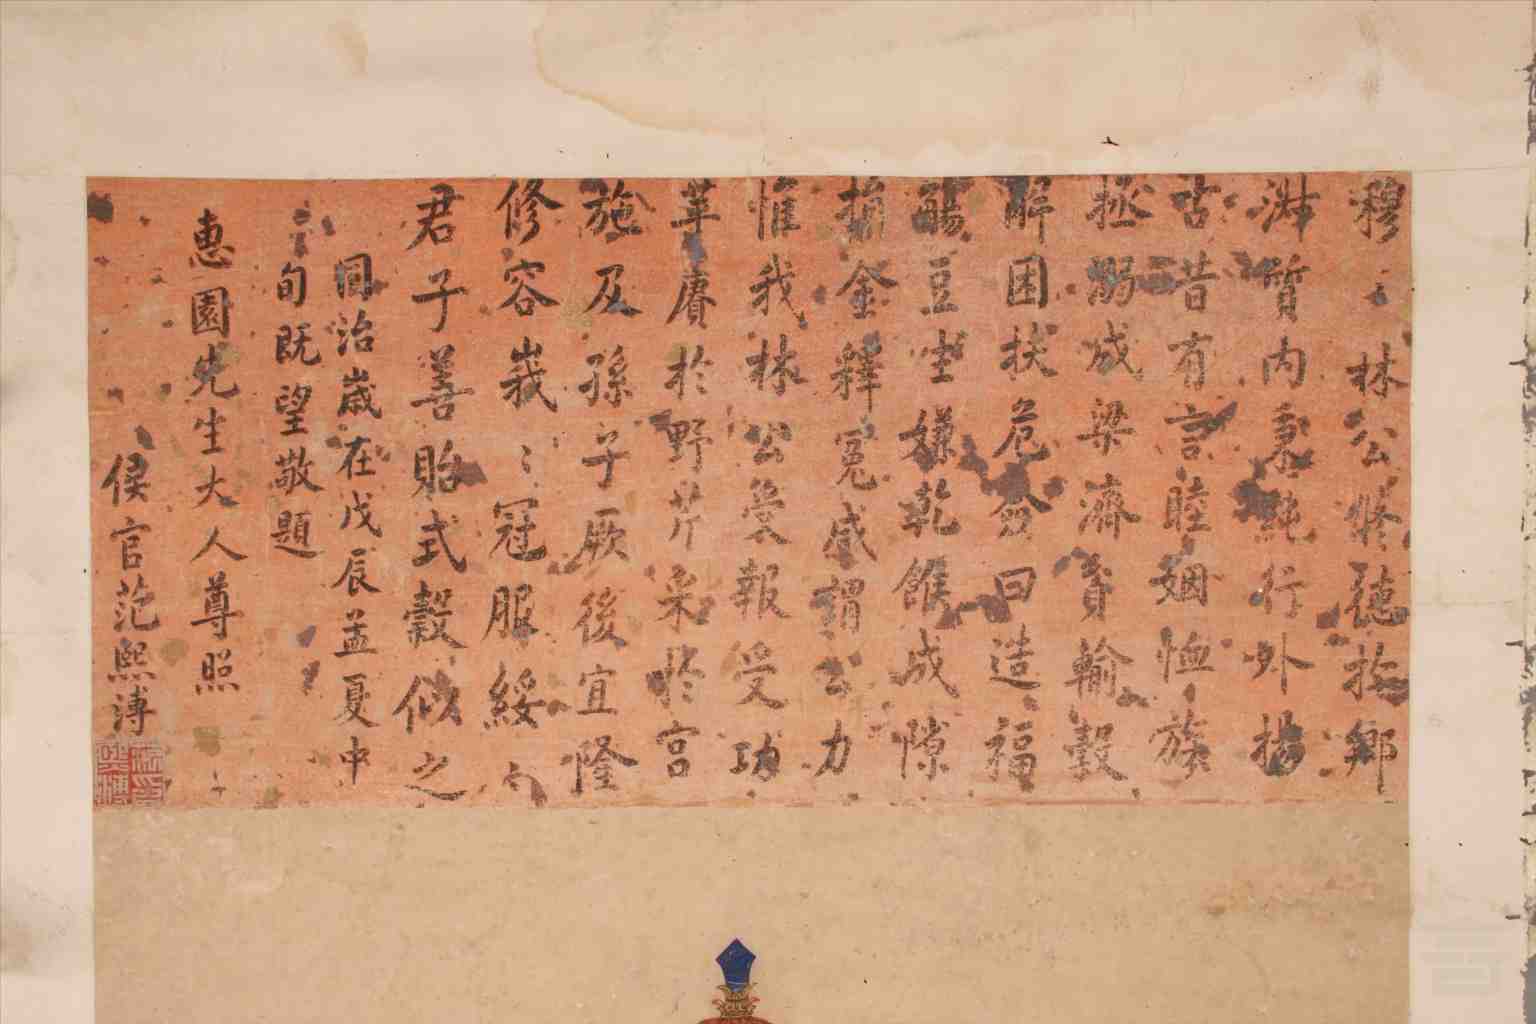 穆〻林公修德於鄉
淵質內秉純行外揚
古昔有言睦姻恤族
拯溺成梁濟貧輸穀
解困扶危僉曰造福
觴豆生嫌乾餱成隙
捐金釋冤咸謂公力
惟我林公受報受功
苹賡於野芹采於宮
施及孫子厥後宜隆
修容峩〻冠服綏〻
君子善貽式穀似之
同治歲在戊辰孟夏中
旬既望敬題
惠園先生大人尊照
侯官范熙溥